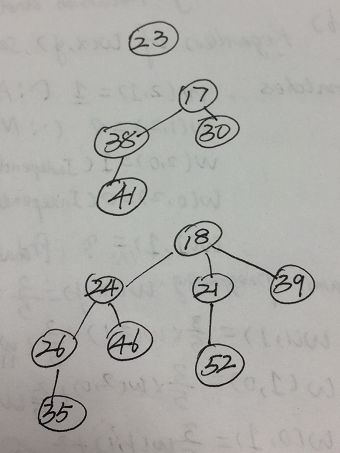 23
17
38 30
41
18
24 21 39
26 46 52
35